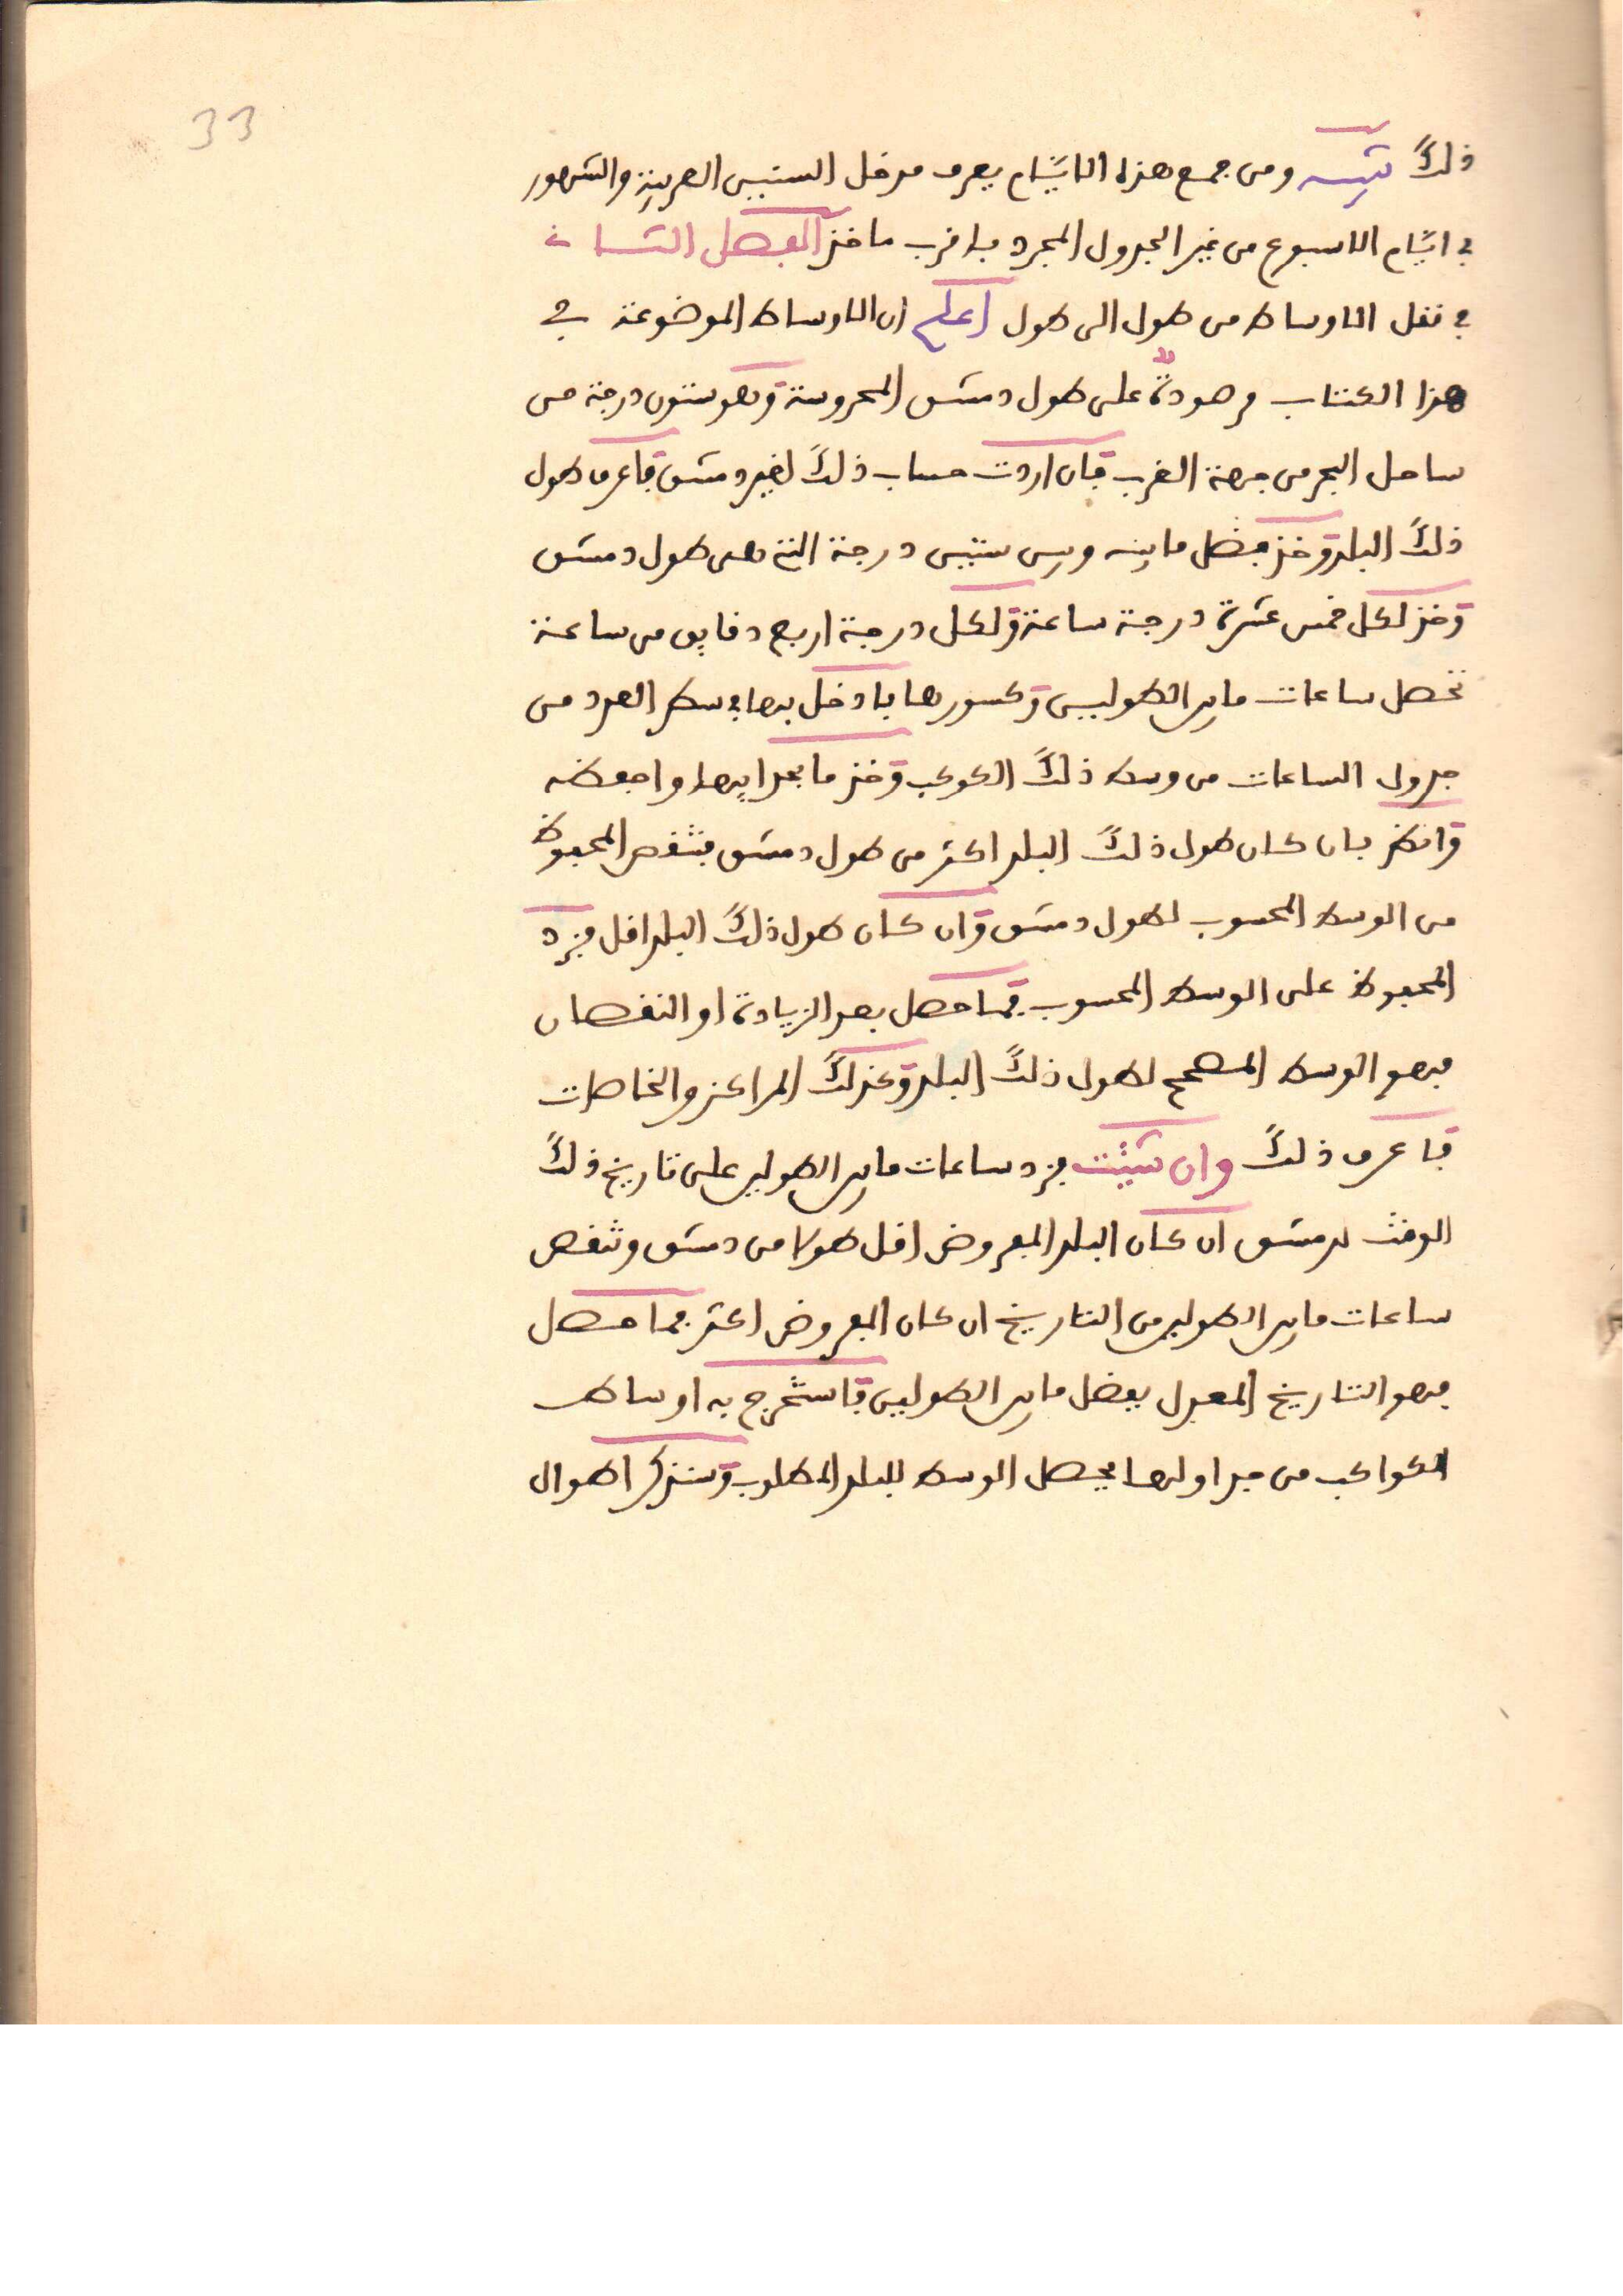 33
ذلك تنبيه ومن جمع هذه الايام يعرف مدخل السنين العربية والشهور
في ايام الاسبوع من غير الجدول المجرد باقرب ماخذ الفصل الثاني
في نقل الاوساط من طول الى طول اعلم ان الاوساط الموضوعة في
هذا الكتاب مرصودة على طول دمشق المحروسة وهو ستون درجة من
ساحل البحر من جهة الغرب فان اردت حساب ذلك لغير دمشق فاعرف طول
ذلك البلد وخذ فضل ما بينه وبين ستين درجة التي هي طول دمشق
وخذ لكل خمس عشرة درجة ساعة ولكل درجة اربع دقايق من ساعة
تحصل ساعات ما بين الطولين وكسورها فادخل بها في سطر العدد من
جدول الساعات من وسط ذلك الكوكب وخذ ما بحدايها واحفظه
وانظر فان كان طول ذلك البلد اكثر من طول دمشق فتنقص المحفوظ
من الوسط المحسوب لطول دمشق وان كان طول ذلك البلد اقل فزد
المحفوظ على الوسط المحسوب فما حصل بعد الزيادة او النقصان
فهو الوسط المصحح لطول ذلك البلد وكذلك المراكز والخاصات
فاعرف ذلك وان شيئت فزد ساعات ما بين الطولين على تاريخ ذلك
الوقت لدمشق ان كان البلد المفروض اقل طولا من دمشق وتنقص
ساعات ما بين الطولين من التاريخ ان كان المفروض اكثر فما حصل
فهو التاريخ المعدل بفضل ما بين الطولين فاستخرج به اوساط
الكواكب من جداولها يحصل الوسط للبلد المطلوب وسنذكر اطوال